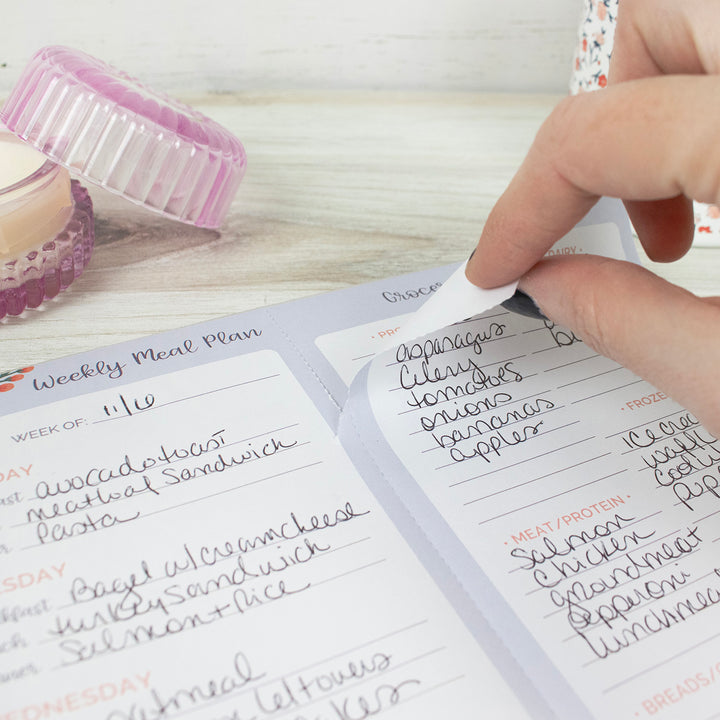 Weekly Meal Plan
WEEK OF: 11/6
DAY
avocado toast
meatloaf Sandwich
Pasta
ESDAY
Bagel w/creamcheese
turkey Sandwich
Salmon + Rice
DNESDAY
oatmeal
leftovers
Groce
PRO
DAIRY ·
asparagus
Celery
tomatoes
onions
bananas
apples
· FROZE
ice crea
waffl
· MEAT/PROTEIN ·
Salmon
chicken
groundmeat
pepperoni
lunchmea
· BREADS/